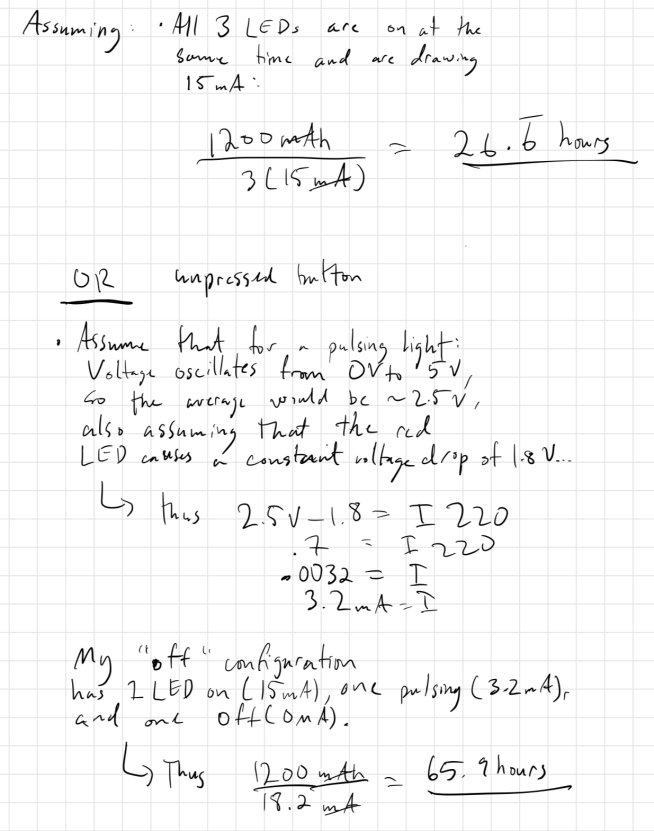 Assuming: · All 3 LEDs are on at the
same time and are drawing
15mA:
1200 mAh / 3(15 mA) = 26.6̅ hours
OR unpressed button
· Assume that for a pulsing light:
Voltage oscillates from 0V to 5V,
so the average would be ~2.5V,
also assuming that the red
LED causes a constant voltage drop of 1.8 V...
↳ thus 2.5V - 1.8 = I 220
.7 = I 220
.0032 = I
3.2mA = I
My "off" configuration
has 1 LED on (15mA), one pulsing (3.2mA),
and one off (0mA).
↳ Thus 1200 mAh / 18.2 mA = 65.9 hours